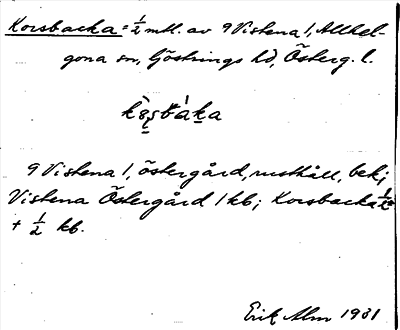 Korsbacka = ½ mtl. av 9 Vistena 1, Allhel-
gona sn, Göstrings hd, Österg. l.
9 Vistena 1, östergård, rusthåll, bek;
Vistena Östergård 1 kb; Korsbacka ½
+ ½ kb.
Erik Alm 1931